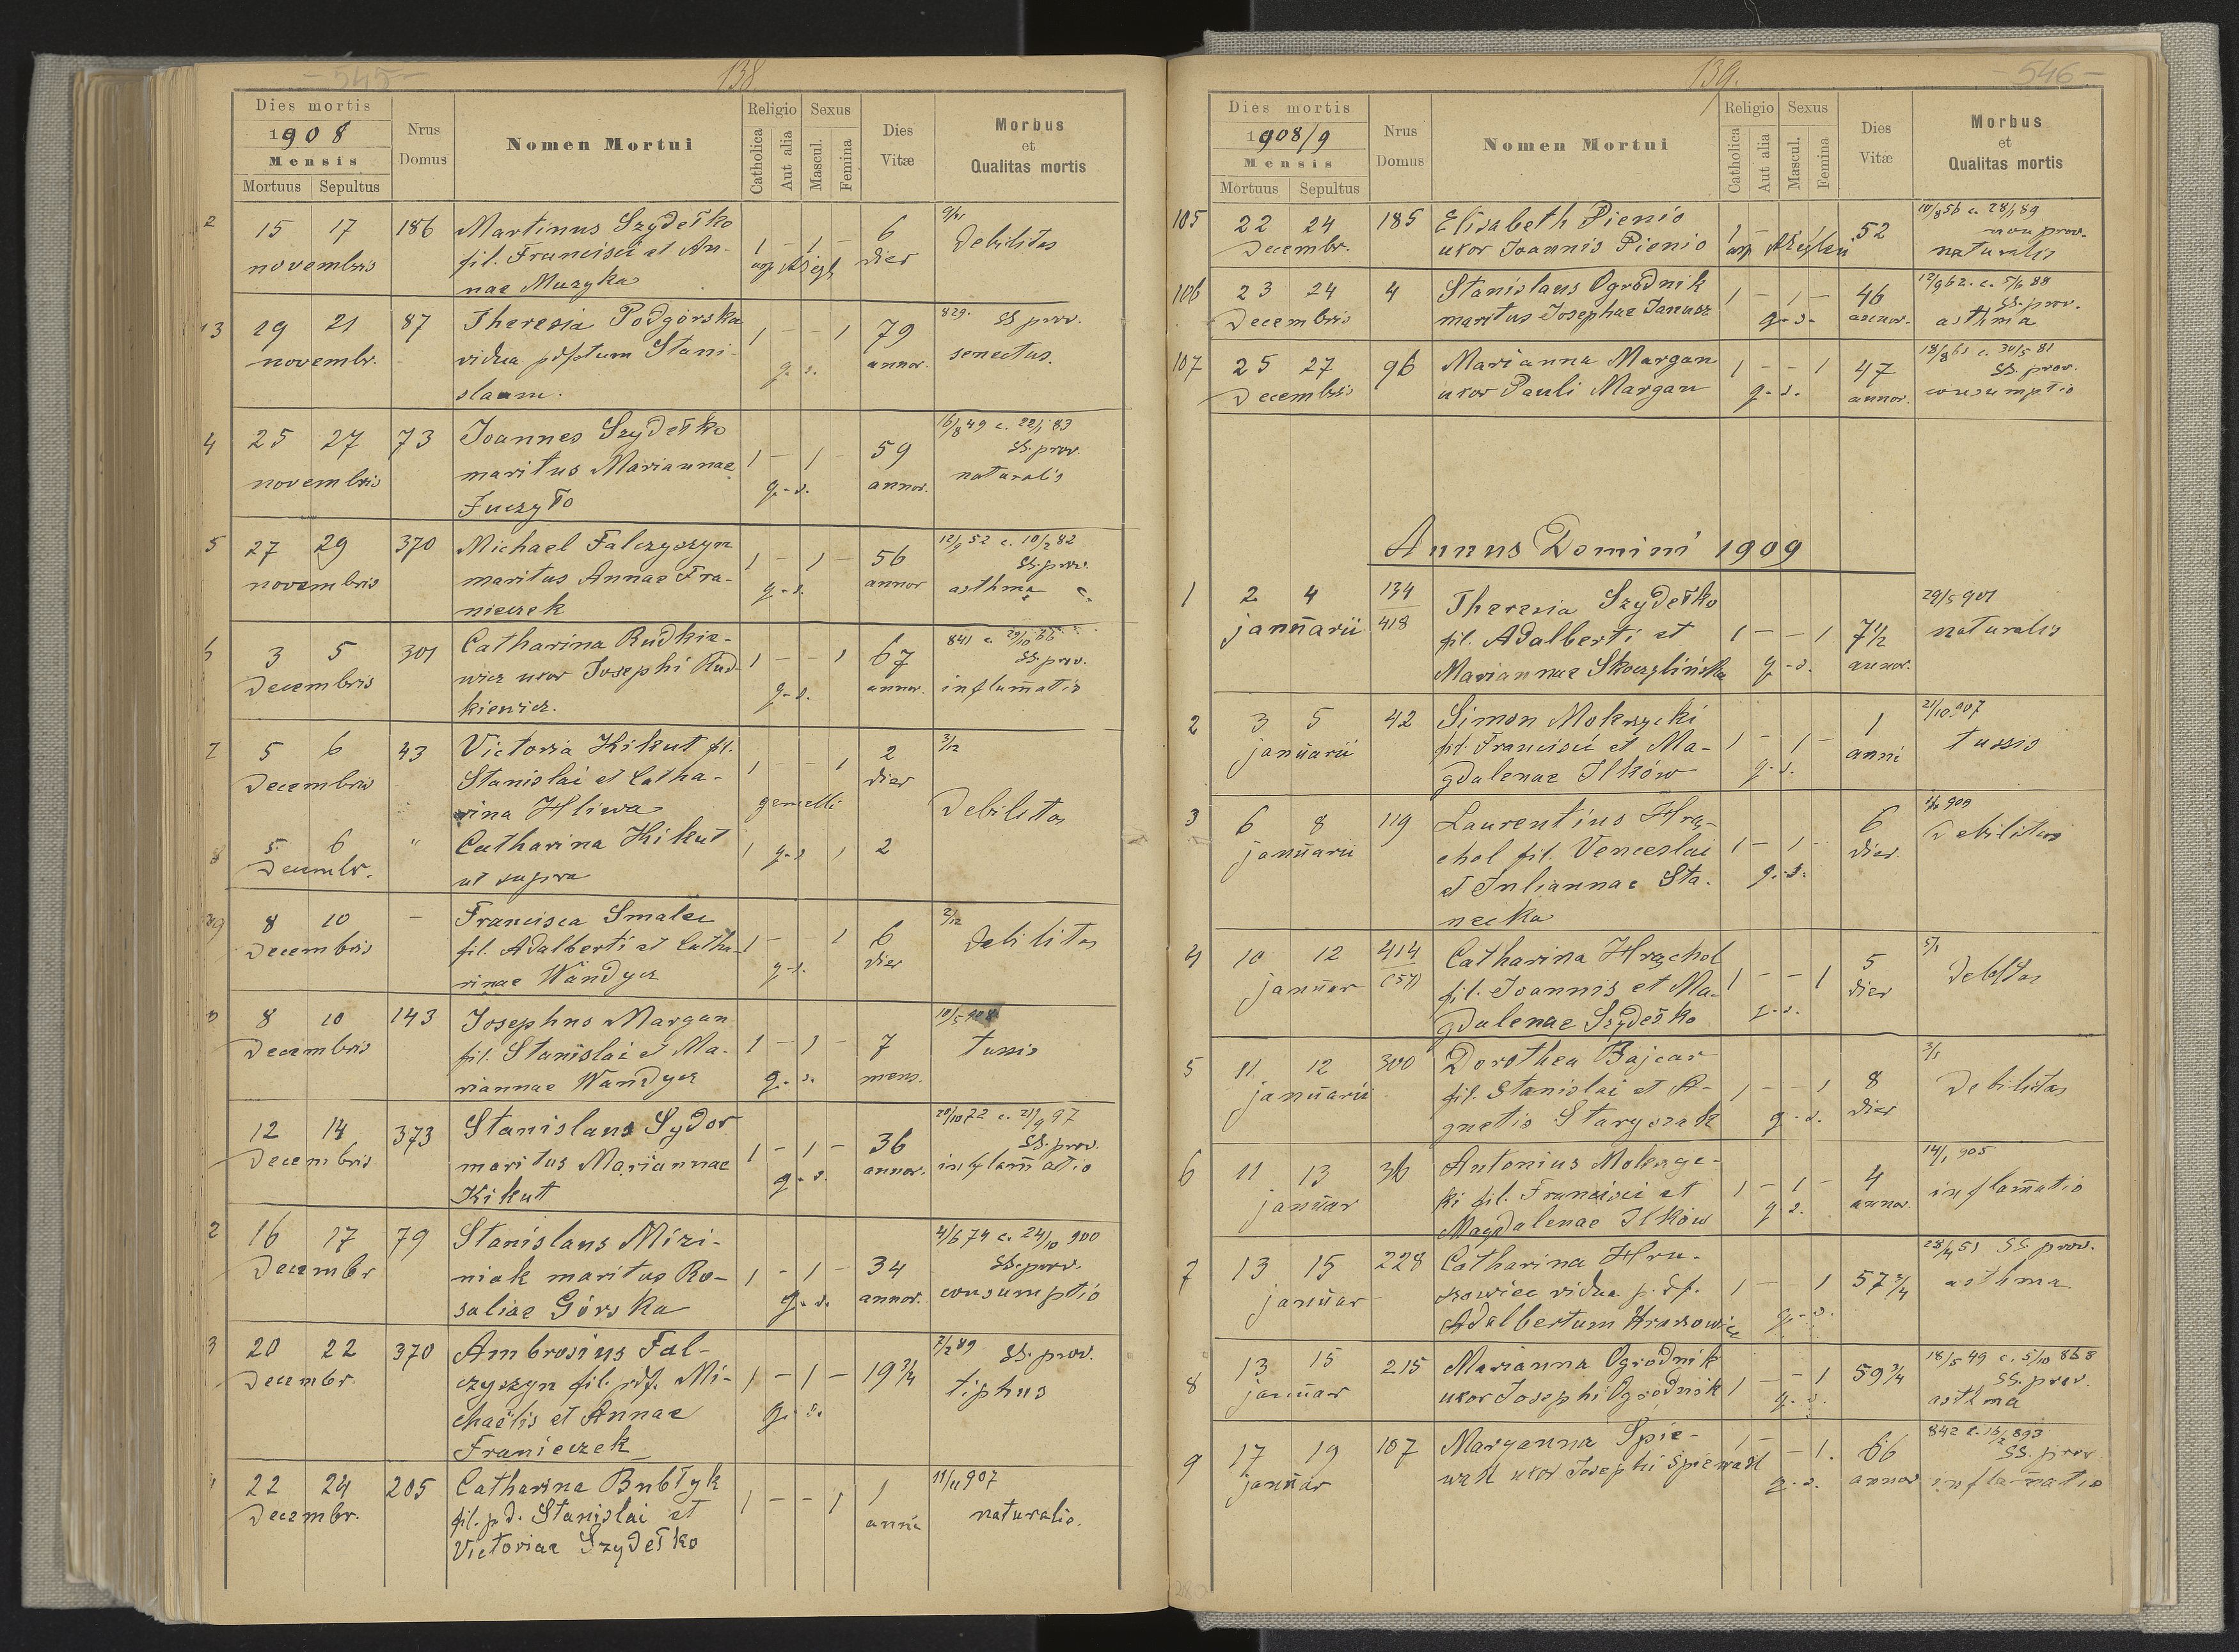 - 545 -
138
Dies mortis
1908
Mensis
Mortuus Sepultus
Nrus Domus
Nomen Mortui
Religio
Catholica
Aut alia
Sexus
Mascul.
Femina
Dies Vitæ
Morbus
et
Qualitas mortis
2 15 17 186 Martinus Szydełko 6 9/11
novembris fil. Francisci et An- 1 - 1 - dier debilitas
nae Muzyka
13 19 21 87 Theresia Podgórska 1 - - 1 79 829. SS prov.
novembr. vidua Stani- q. s. annor. senectus.
slaum.
4 25 27 73 Joannes Szydełko 59 16/8 49 c. 22/1 83
novembris maritus Mariannae 1 - 1 - annor. SS. prov.
Juczyło q. s. naturalis
5 27 29 370 Michael Falczyszyn 1 - 1 - 56 12/9 52 c. 10/2 82
novembris maritus Annae Fra- q. s. annor SS. prov.
nieczek asthma
3 5 301 Catharina Rudkie- 1 - - 1 67 841 c. 29/10 66
Decembris wicz uxor Josephi Rud- q. s. annor. SS. prov.
kiewicz. inflam̄atio
7 5 6 43 Victoria Kikut fil. 1 - - 1 2 3/12
Decembris Stanislai et Catha- dier
rina Hliwa gemelli debilitas
8 5 6 " Catharina Kikut 1 q. s. 1 2
Decembr. ut supra
8 10 - Francisca Smalec 1 - 1 6 2/12
Decembris fil. Adalberti et Catha- q. s. dier debilitas
rinae Wandycz
8 10 143 Josephus Margan 10/5 908
Decembris fil. Stanislai et Ma- 1 - 1 - 7 tussis
riannae Wandycz q. s. mens.
12 14 373 Stanislaus Sydor 36 20/10 72 c. 21/9 97
Decembris maritus Mariannae 1 - 1 - annor. SS. prov.
Kikut q. s. inflam̄atio
2 16 17 79 Stanislaus Mizi- 4/6 74 c. 24/10 900
Decembr niak maritus Ro- 1 - 1 - 34 SS. prov.
saliae Górska q. s. annor. consumptio
3 20 22 370 Ambrosius Fal- 2/2 89 SS. prov.
Decembr. czyszyn fil. pdf. Mi- 1 - 1 - 19 3/4 tiphus
chaëlis et Annae q. s.
Franieczek
22 24 205 Catharina Bubłyk 1 11/11 907
Decembr. fil. p. d. Stanislai et 1 - - 1 anni naturalis.
Victoriae Szydełko
139.
- 546 -
Dies mortis
1908/9
Mensis
Mortuus Sepultus
Nrus Domus
Nomen Mortui
Religio
Catholica
Aut alia
Sexus
Mascul.
Femina
Dies Vitæ
Morbus
et
Qualitas mortis
105 22 24 185 Elisabeth Pienio 52 10/8 56 c. 28/1 89
Decembr. uxor Joannis Pienio non prov.
naturalis
106 23 24 4 Stanislaus Ogrodnik 1 - 1 - 46 SS. prov.
Decembris maritus Josephae Janusz q. s. annor. asthma
107 25 27 96 Marianna Margan 1 - - 1 47 18/8 61 c. 30/5 81
Decembris uxor Pauli Margan q. s. annor. SS. prov.
consumptio
Annus Domini 1909
1 2 4 134/418 Theresia Szydełko 29/5 901
januarii fil. Adalberti et 1 - - 1 7 1/2 naturalis
Mariannae Skoczylińska q. s. annor.
2 3 5 42 Simon Mokrzycki 1 21/10 907
januarii fil. Francisci et Ma- 1 - 1 - anni tussis
gdalenae Ilków q. s.
3 6 8 119 Laurentius Hrą- 6 909
januarii chol fil. Venceslai 1 - 1 - dier. debilitas
et Juliannae Sta- q. s.
necka
4 10 12 414 (57) Catharina Hrąchol 5 5/1
januar fil. Joannis et Ma- 1 - - 1 dier debilitas
gdalenae Szydełko q. s.
5 11 12 300 Dorothea Bajcar 3/1
januarii fil. Stanislai et A- 1 - - 1 8 debilitas
gnetis Staryszak q. s. dier
6 11 13 36 Antonius Mokrzyc- 14/1 905
januar ki fil. Francisci et 1 - 1 - 4 inflam̄atio
Magdalenae Ilków q. s. annor.
7 13 15 228 Catharina Hru- 28/4 51 SS. prov.
januar szowiec vidua p. df. 1 - 1 57 3/4 asthma
Adalbertum q. s.
8 13 15 215 Marianna Ogrodnik 59 3/4 18/5 49 c. 5/10 868
januar uxor Josephi Ogrodnik 1 - - 1 SS. prov.
q. s. asthma
9 17 19 107 Maryanna Śpie- 1 - - 1. 66 842 c. 16/2 893
januar wak uxor Josephi Śpiewak q. s. annor SS. prov.
inflam̄atio